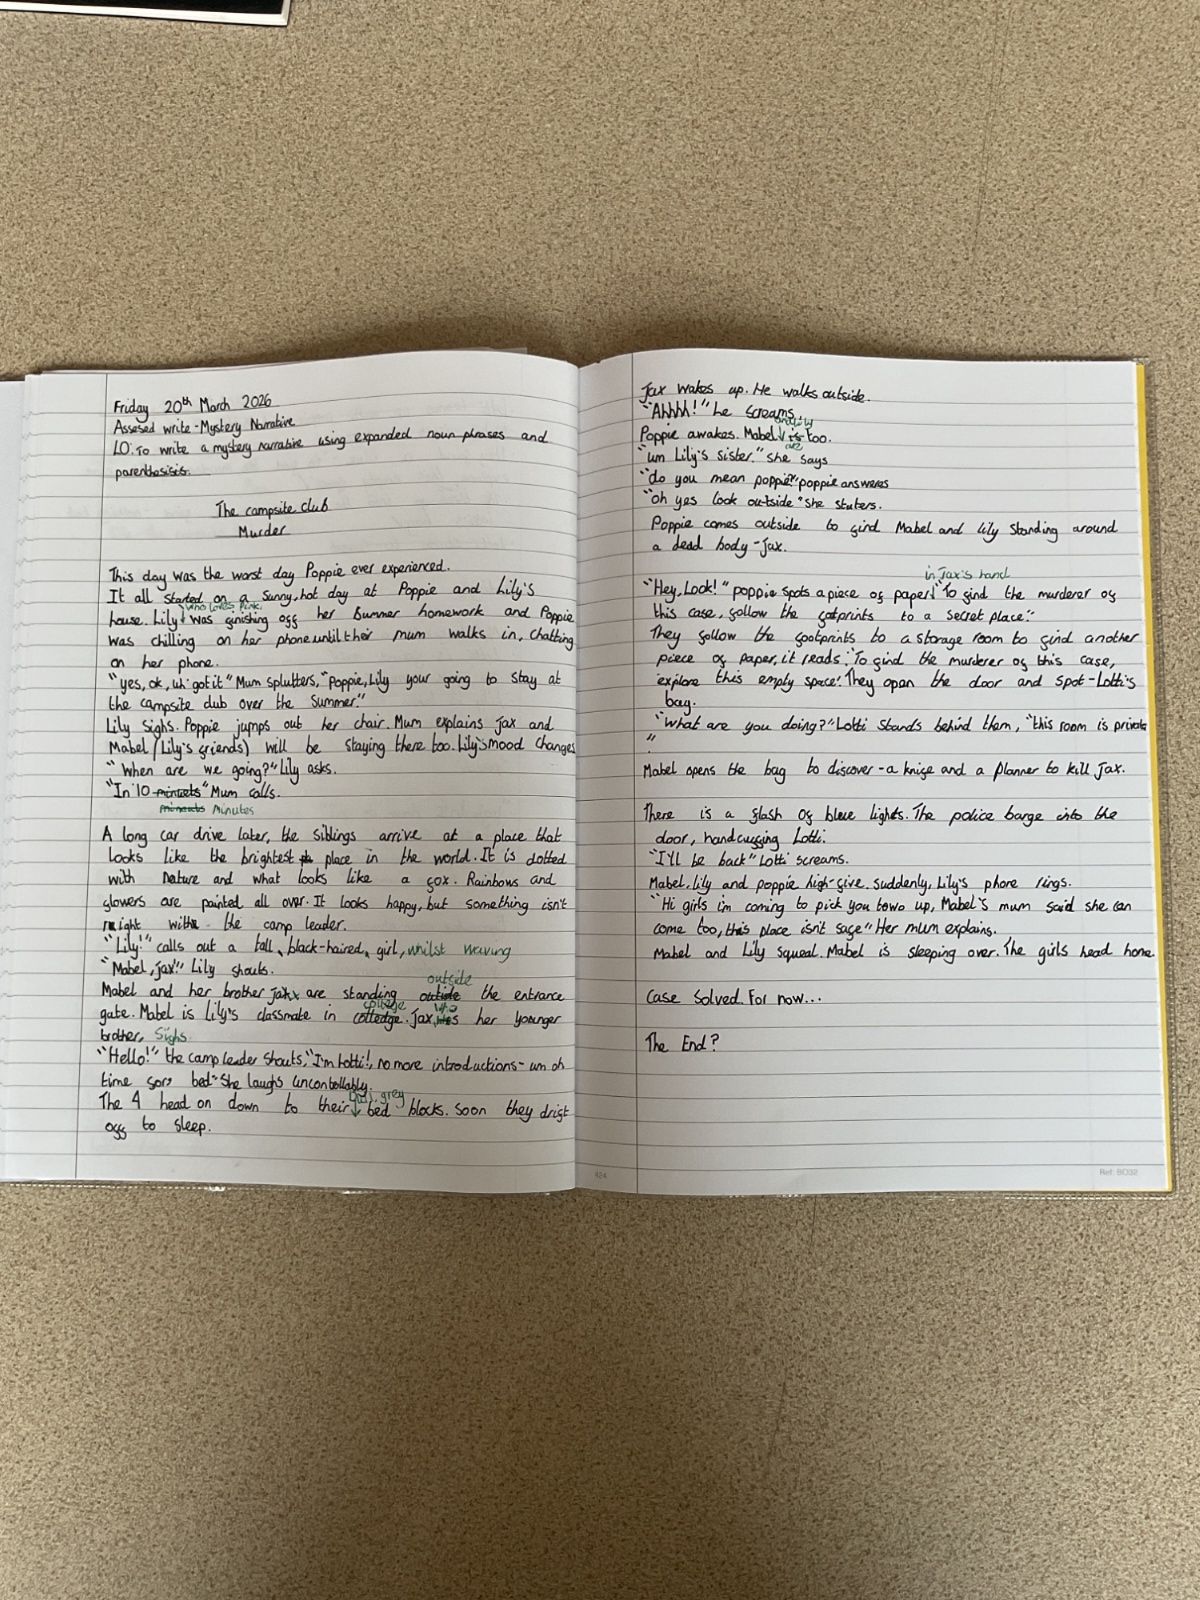 Friday 20th March 2026
Assesed write - Mystery Narrative
LO: To write a mystery narrative using expanded noun phrases and
parenthesisis.
The campsite club
Murder
This day was the worst day Poppie ever experienced.
It all started on a sunny, hot day at Poppie and Lily's
who loves pink,
house. Lily was finishing off her summer homework and Poppie
was chilling on her phone until their mum walks in, chatting
on her phone.
"yes, ok, uh got it" Mum splutters, "Poppie, Lily your going to stay at
the campsite club over the summer."
Lily sighs. Poppie jumps out her chair. Mum explains Jax and
Mabel (Lily's friends) will be staying there too. Lily's mood changes
"When are we going?" Lily asks.
"In 10 " Mum calls.
minutes
A long car drive later, the siblings arrive at a place that
looks like the brightest place in the world. It is dotted
with nature and what looks like a fox. Rainbows and
flowers are painted all over. It looks happy, but something isn't
right with the camp leader.
"Lily!" calls out a tall, black-haired, girl, whilst waving
"Mabel, Jax!" Lily shouts.
outside
Mabel and her brother Jax are standing outside the entrance
college who
gate. Mabel is Lily's classmate in colledge. Jax, is her younger
brother, sighs.
"Hello!" the camp leader shouts, "I'm Lotti!, no more introductions - um oh
time for bed" She laughs uncontollably.
dull, grey
The 4 head on down to their bed blocks. Soon they drift
off to sleep.
Jax wakes up. He walks outside.
"Ahhhh!" he screams.
Poppie awakes. Mabel is too.
"um Lily's sister." she says
"do you mean poppie?" poppie answeres
"oh yes look outside" she stuters.
Poppie comes outside to find Mabel and lily standing around
a dead body - Jax.
in Jax's hand
"Hey, Look!" poppie spots a piece of paper "To find the murderer of
this case, follow the fotprints to a secret place."
They follow the footprints to a storage room to find another
piece of paper, it reads: "To find the murderer of this case,
explore this empty space". They open the door and spot - Lotti's
bag.
"What are you doing?" Lotti stands behind them, "this room is private
".
Mabel opens the bag to discover - a knife and a planner to kill Jax.
There is a flash of blue lights. The police barge into the
door, handcuffing Lotti.
"I'll be back" Lotti screams.
Mabel, lily and poppie high-five. suddenly, Lily's phone rings.
"Hi girls im coming to pick you up, Mabel's mum said she can
come too, this place isn't safe" Her mum explains.
Mabel and Lily squeal. Mabel is sleeping over. The girls head home.
Case Solved. For now...
The End?
424
Ref: BD32